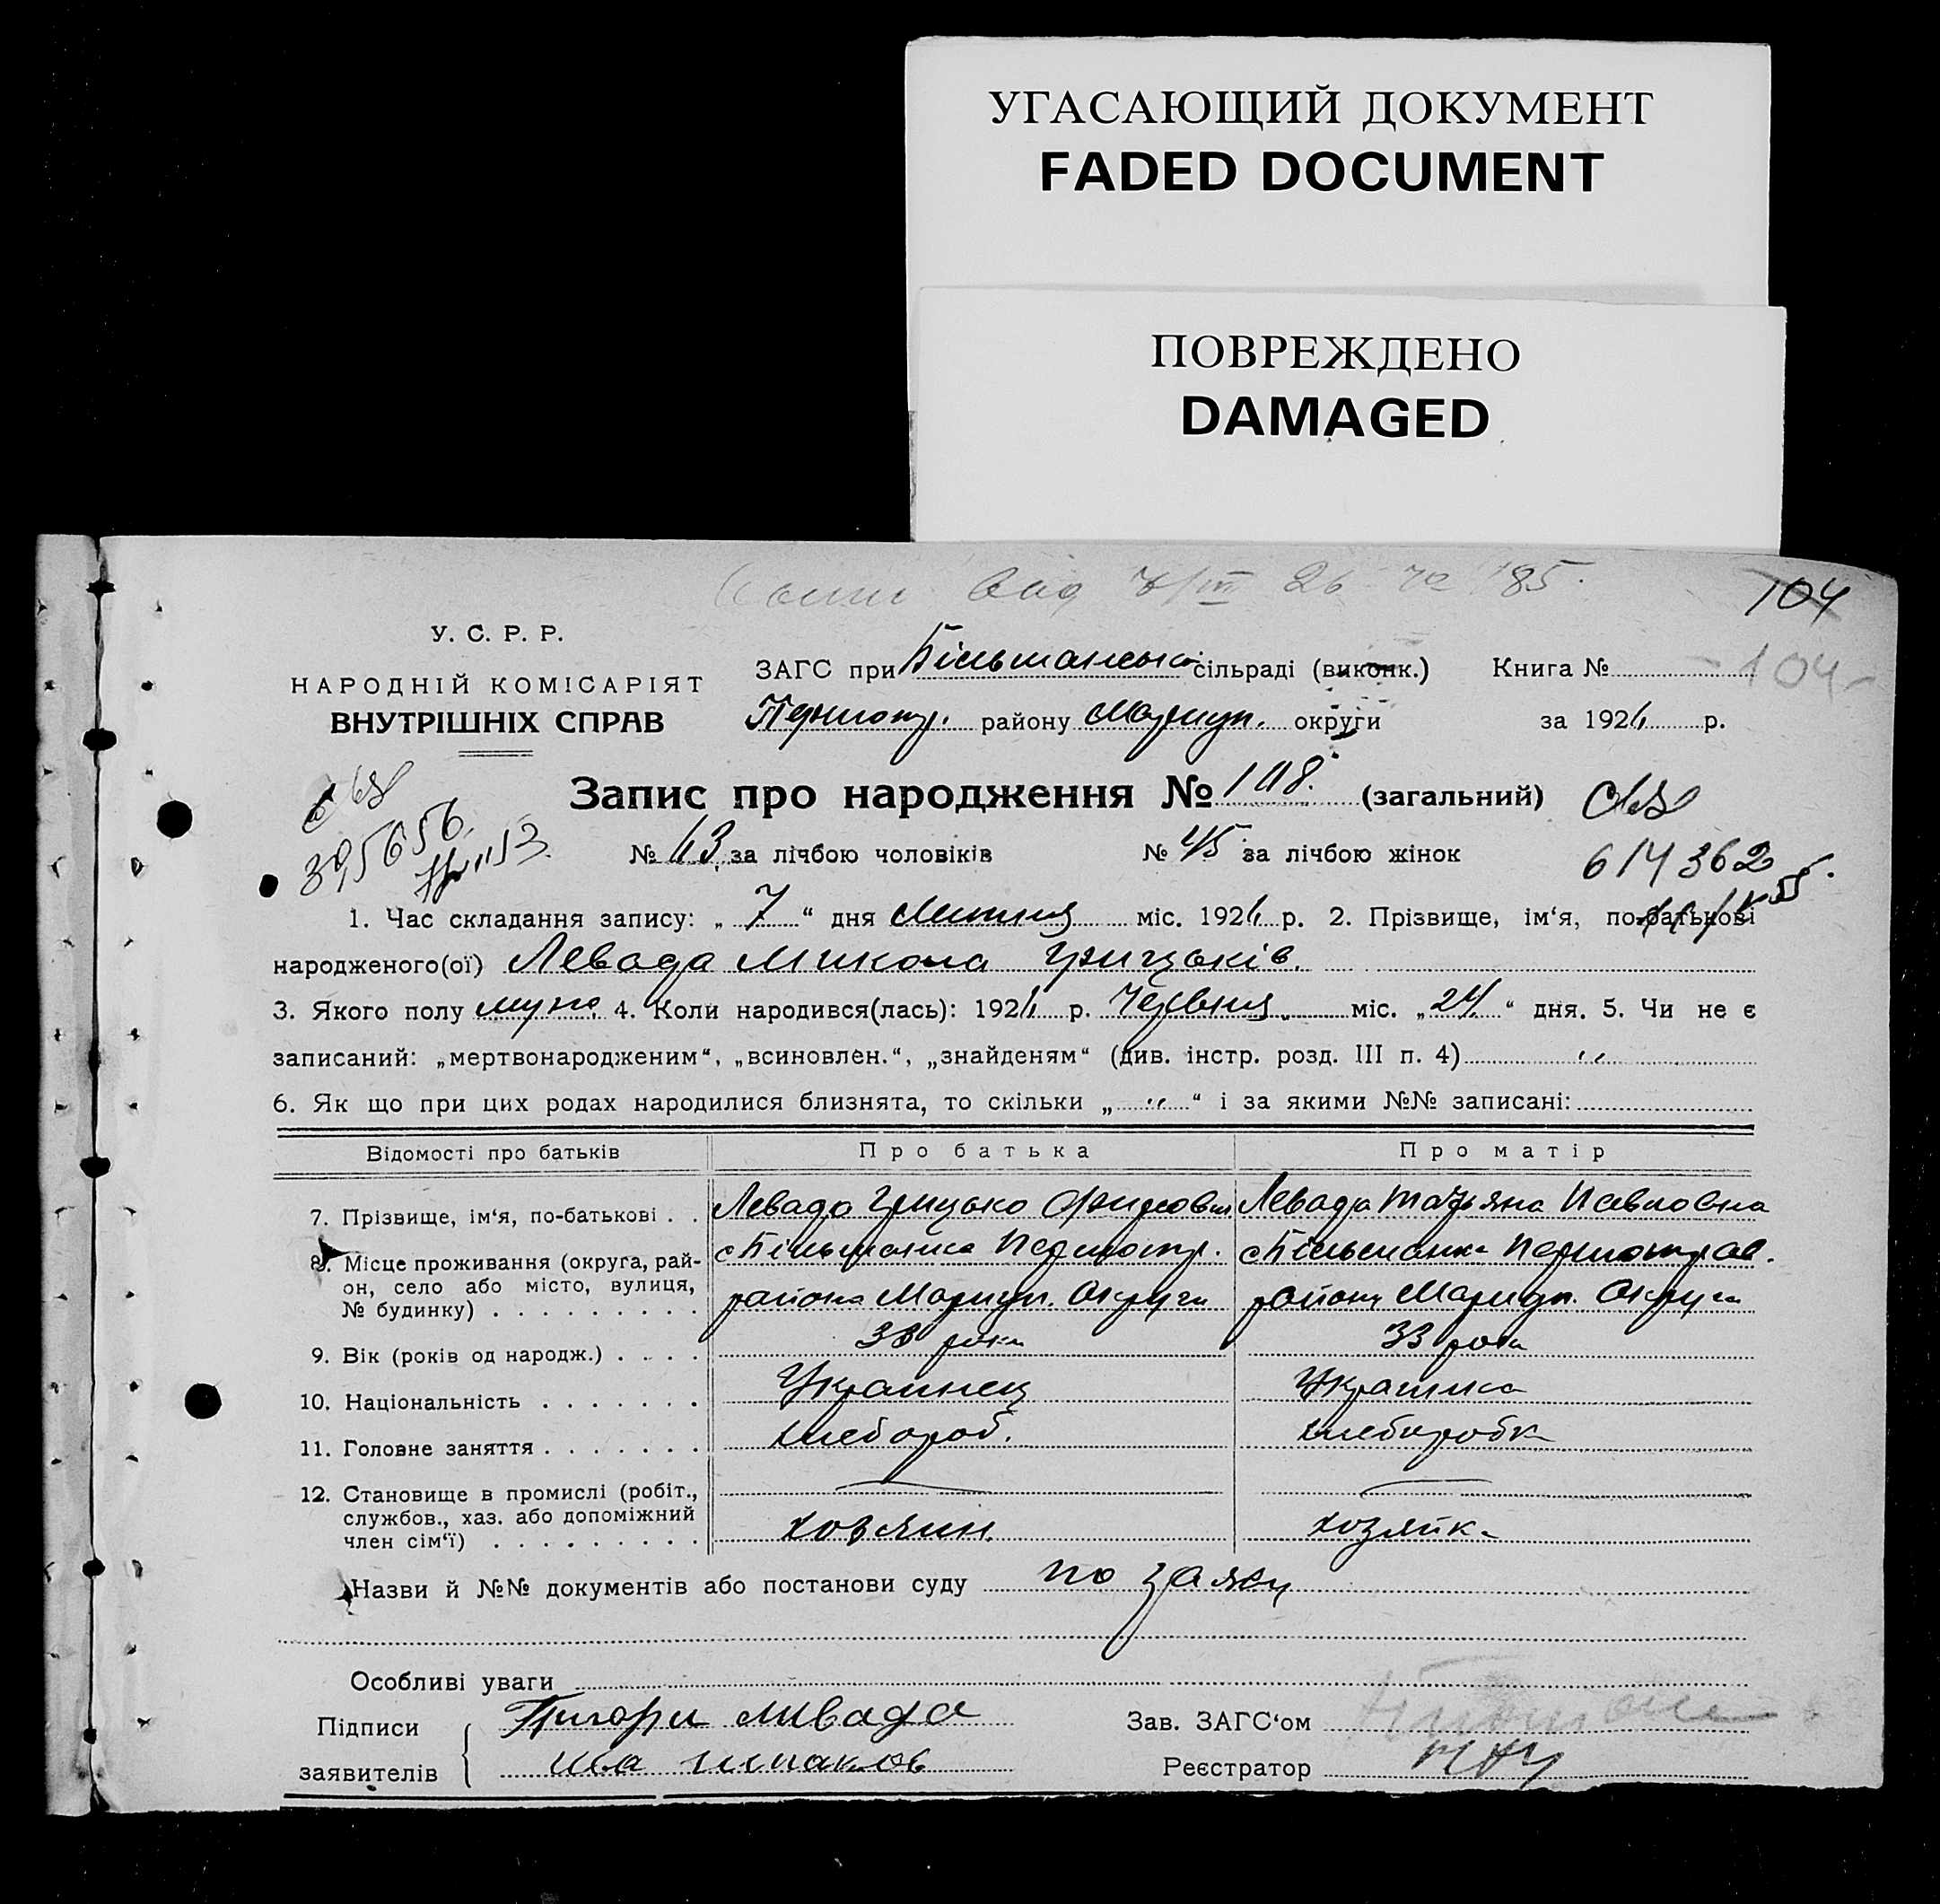 УГАСАЮЩИЙ ДОКУМЕНТ
FADED DOCUMENT
ПОВРЕЖДЕНО
DAMAGED
104
У. С. Р. Р.
НАРОДНІЙ КОМІСАРІЯТ
ВНУТРІШНІХ СПРАВ
ЗАГС при сільраді (виконк.) Книга № 104
району Мариуп. округи за 192 р.
Запис про народження № 108. (загальний)
№ 63 за лічбою чоловіків № 45 за лічбою жінок
614362
1. Час складання запису: „ 7 “ дня Липня міс. 192 р. 2. Прізвище, ім‘я, по-батькові
народженого(ої) Левада Микола Грицьків.
3. Якого полу муж. 4. Коли народився(лась): 192 р. Червня міс. „ 24 “ дня. 5. Чи не є
записаний: „мертвонародженим“, „всиновлен.“, „знайденям“ (див. інстр. розд. III п. 4) "
6. Як що при цих родах народилися близнята, то скільки „ " “ і за якими №№ записані:
Відомості про батьків Про батька Про матір
7. Прізвище, ім‘я, по-батькові . . Левада Грицько Левада Татьяна Павловна
8. Місце проживання (округа, рай-
он, село або місто, вулиця,
№ будинку) . . . . . . . . .
района Мариуп. Округи району Мариуп. Округи
9. Вік (років од народж.) . . . . 33 роки 33 роки
10. Національність . . . . . . . Украинец Украинка
11. Головне заняття . . . . . . . хлебороб. хлеборобка
12. Становище в промислі (робіт.,
службов., хаз. або допоміжний
член сім‘ї) . . . . . . . . . хозяин хозяйка
Назви й №№ документів або постанови суду по заяви
Особливі уваги
Підписи Григори Ливада Зав. ЗАГС‘ом
заявителів Реєстратор